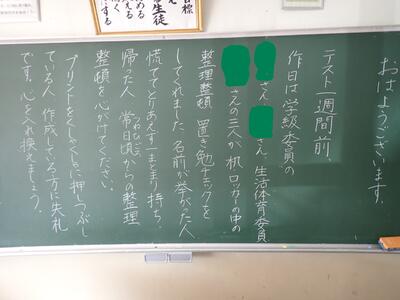 おはようございます。
テスト一週間前。
作日は学級委員の
さん、さん 生活体育委員
さんの三人が 机、ロッカーの中の
整理整頓 置き勉チェックを
してくれました。名前が挙がった人
慌ててとりあえず一まとまり持ち
帰った人 常日頃からの整理
つねひごろ
整頓を心がけてください。
プリントをくしゃくしゃに押しつぶし
ている人 作成している方に失礼
です。心を入れ換えましょう。
目標